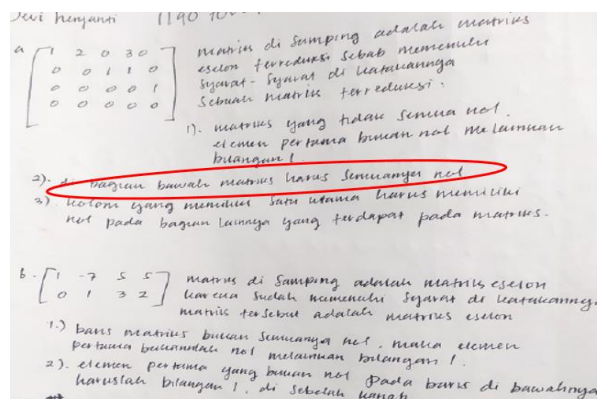 Devi henjanti 1190
a [1 2 0 3 0 matriks di samping adalah matriks
0 0 1 1 0 eselon terreduksi sebab memenuhi
0 0 0 0 1 syarat-syarat di katakannya
0 0 0 0 0] sebuah matriks terreduksi.
1). matriks yang tidak semua nol.
elemen pertama bukan nol melainkan
bilangan 1.
2). di bagian bawah matriks harus semuanya nol
3). kolom yang memiliki satu utama harus memiliki
nol pada bagian lainnya yang terdapat pada matriks.
b. [1 -7 5 5 matriks di samping adalah matriks eselon
0 1 3 2] karena sudah memenuhi syarat di katakannya
matriks tersebut adalah matriks eselon
1.) baris matriks bukan semuanya nol. maka elemen
pertama bukanlah nol melainkan bilangan 1.
2). elemen pertama yang bukan nol pada baris di bawahnya
haruslah bilangan 1. di sebelah kanan